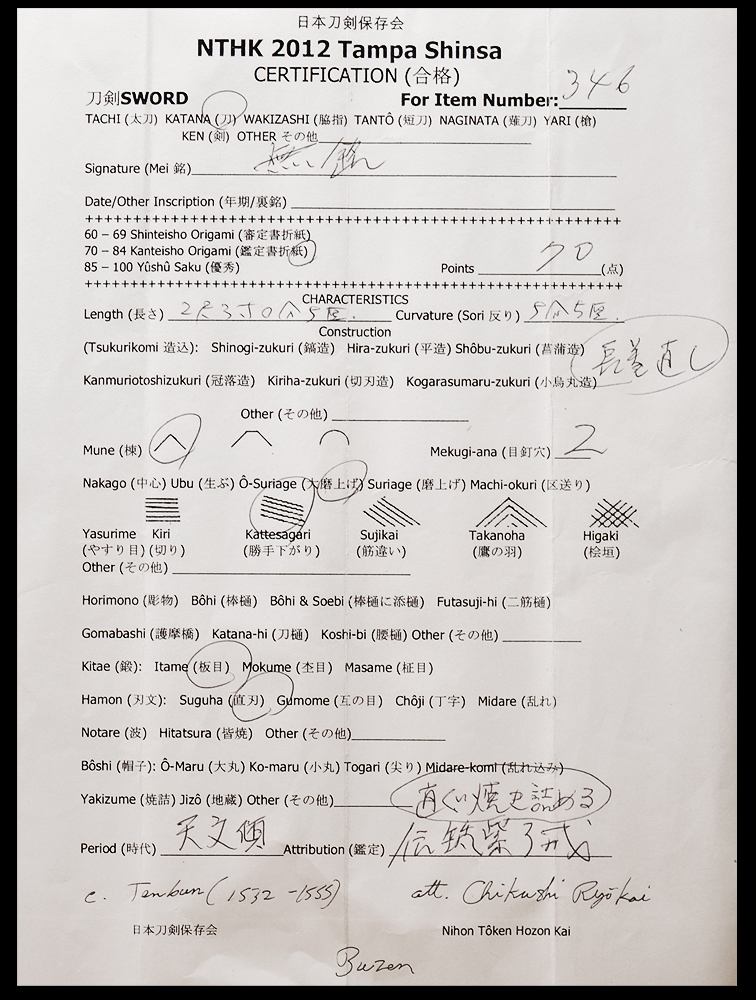 日本刀剣保存会
NTHK 2012 Tampa Shinsa
CERTIFICATION (合格)
刀剣SWORD For Item Number: 346
TACHI (太刀) KATANA (刀) WAKIZASHI (脇指) TANTÔ (短刀) NAGINATA (薙刀) YARI (槍)
KEN (剣) OTHER その他
Signature (Mei 銘) 無銘
Date/Other Inscription (年期/裏銘)
++++++++++++++++++++++++++++++++++++++++++++++++++++++++++++++++
60 – 69 Shinteisho Origami (審定書折紙)
70 – 84 Kanteisho Origami (鑑定書折紙)
85 – 100 Yûshû Saku (優秀) Points 70 (点)
++++++++++++++++++++++++++++++++++++++++++++++++++++++++++++++++
CHARACTERISTICS
Length (長さ) 2尺3寸0分5厘. Curvature (Sori 反り) 5分5厘.
Construction
(Tsukurikomi 造込): Shinogi-zukuri (鎬造) Hira-zukuri (平造) Shôbu-zukuri (菖蒲造) 長巻直し
Kanmuriotoshizukuri (冠落造) Kiriha-zukuri (切刃造) Kogarasumaru-zukuri (小烏丸造)
Other (その他)
Mune (棟) Mekugi-ana (目釘穴) 2
Nakago (中心) Ubu (生ぶ) Ô-Suriage (大磨上げ) Suriage (磨上げ) Machi-okuri (区送り)
Yasurime Kiri Kattesagari Sujikai Takanoha Higaki
(やすり目) (切り) (勝手下がり) (筋違い) (鷹の羽) (桧垣)
Other (その他)
Horimono (彫物) Bôhi (棒樋) Bôhi & Soebi (棒樋に添樋) Futasuji-hi (二筋樋)
Gomabashi (護摩橋) Katana-hi (刀樋) Koshi-bi (腰樋) Other (その他)
Kitae (鍛): Itame (板目) Mokume (杢目) Masame (柾目)
Hamon (刃文): Suguha (直刃) Gumome (互の目) Chôji (丁字) Midare (乱れ)
Notare (波) Hitatsura (皆焼) Other (その他)
Bôshi (帽子): Ô-Maru (大丸) Ko-maru (小丸) Togari (尖り) Midare-komi (乱れ込み)
Yakizume (焼詰) Jizô (地蔵) Other (その他) 直ぐに焼き詰める
Period (時代) 天文頃 Attribution (鑑定) 伝筑紫了戒
c. Tenbun (1532 -1555) att. Chikushi Ryōkai
日本刀剣保存会 Nihon Tôken Hozon Kai
Buzen